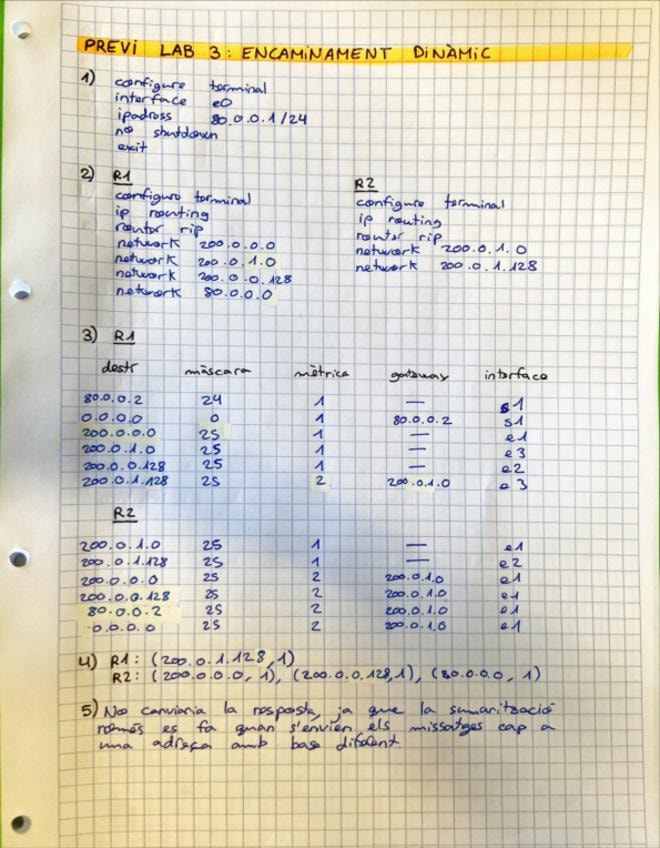 PREVI LAB 3: ENCAMINAMENT DINÀMIC
1) configure terminal
interface e0
ipadress 80.0.0.1/24
no shutdown
exit
2) R1
configure terminal
ip routing
router rip
network 200.0.0.0
network 200.0.1.0
network 200.0.0.128
network 80.0.0.0
R2
configure terminal
ip routing
router rip
network 200.0.1.0
network 200.0.1.128
3) R1
destí màscara mètrica gateway interface
80.0.0.2 24 1 — s1
0.0.0.0 0 1 80.0.0.2 s1
200.0.0.0 25 1 — e1
200.0.1.0 25 1 — e3
200.0.0.128 25 1 — e2
200.0.1.128 25 2 200.0.1.0 e3
R2
200.0.1.0 25 1 — e1
200.0.1.128 25 1 — e2
200.0.0.0 25 2 200.0.1.0 e1
200.0.0.128 25 2 200.0.1.0 e1
80.0.0.2 25 2 200.0.1.0 e1
0.0.0.0 25 2 200.0.1.0 e1
4) R1: (200.0.1.128,1)
R2: (200.0.0.0, 1), (200.0.0.128,1), (80.0.0.0, 1)
5) No canviaria la resposta, ja que la sumarització
només es fa quan s'envien els missatges cap a
una adreça amb base diferent